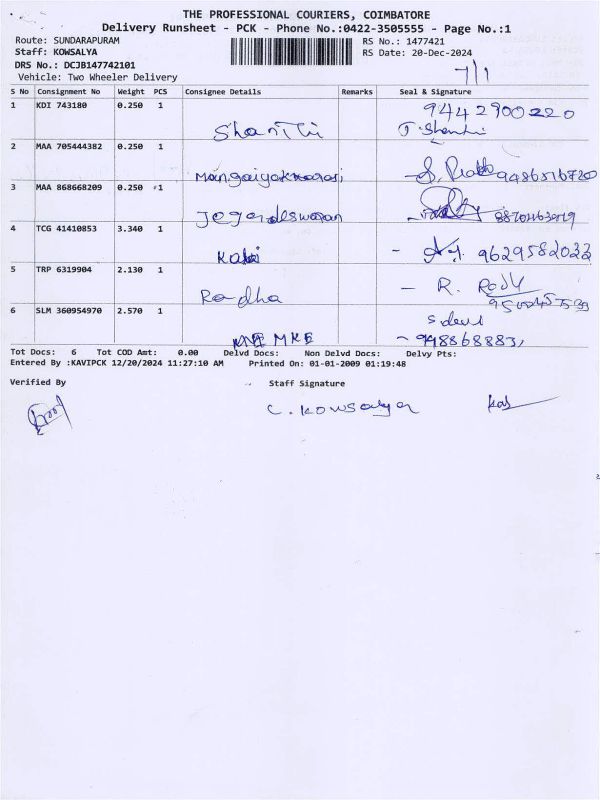 THE PROFESSIONAL COURIERS, COIMBATORE
Delivery Runsheet - PCK - Phone No.:0422-3505555 - Page No.:1
Route: SUNDARAPURAM RS No.: 1477421
Staff: KOWSALYA RS Date: 20-Dec-2024
DRS No.: DCJB147742101
Vehicle: Two Wheeler Delivery
S No Consignment No Weight PCS Consignee Details Remarks Seal & Signature
1 KDI 743180 0.250 1 9442900220
Shanthi T. Shanthi
2 MAA 705444382 0.250 1
3 MAA 868668209 0.250 1
4 TCG 41410853 3.340 1
9629582032
5 TRP 6319904 2.130 1
Radha R.
6 SLM 360954970 2.570 1
MKE
Tot Docs: 6 Tot COD Amt: 0.00 Delvd Docs: Non Delvd Docs: Delvy Pts:
Entered By :KAVIPCK 12/20/2024 11:27:10 AM Printed On: 01-01-2009 01:19:48
Verified By Staff Signature
C. Kowsalya